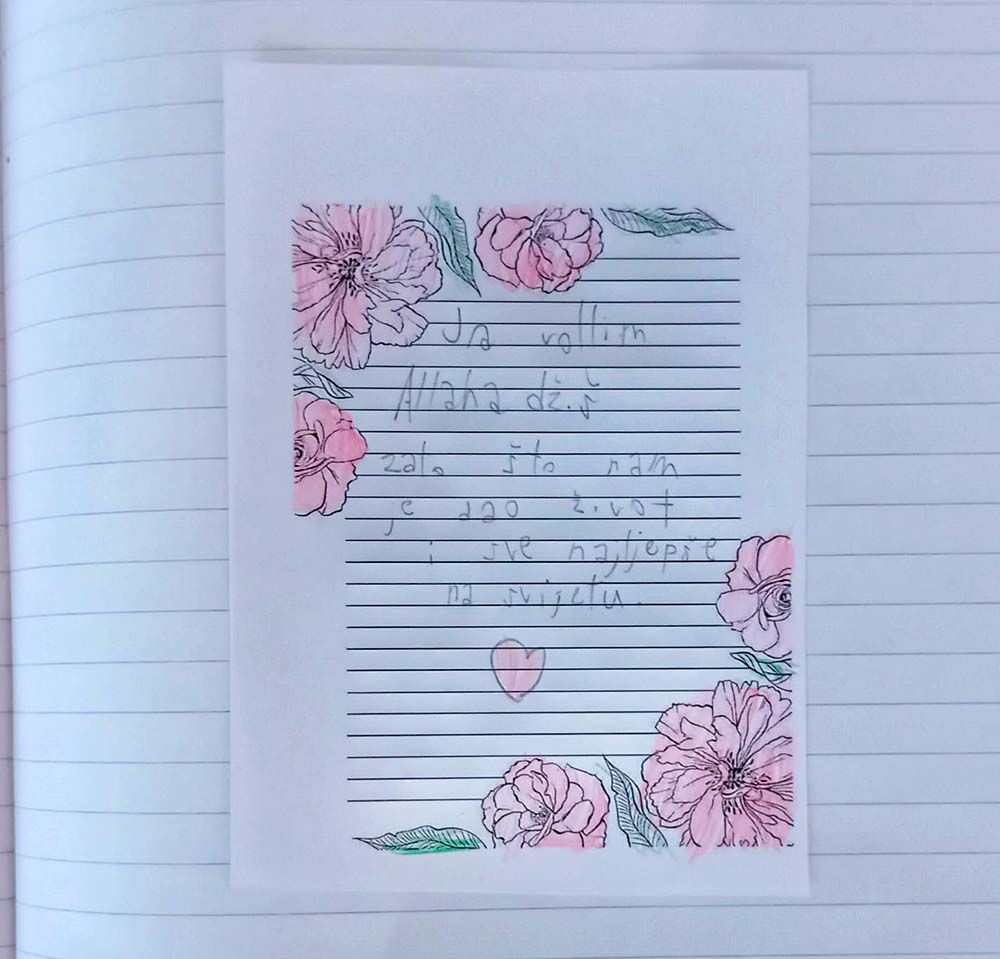 Ja vollim
Allaha dž.š
zato što nam
je dao život
i sve najljepše
na svijetu.